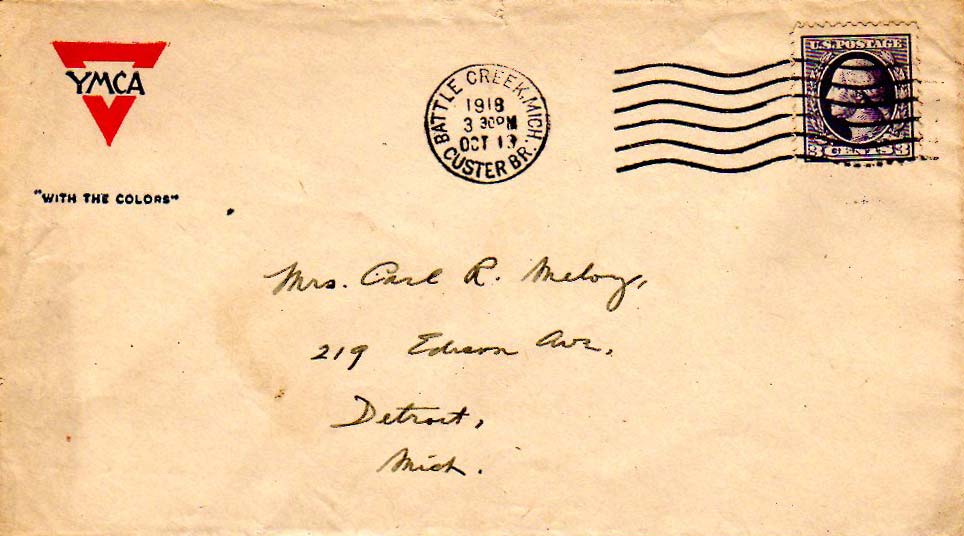 YMCA
"WITH THE COLORS"
BATTLE CREEK, MICH.
1918
3 30PM
OCT 13
CUSTER BR.
U.S. POSTAGE
3 CENTS 3
Mrs. Carl R. Meloy,
219 Edison Ave,
Detroit,
Mich.